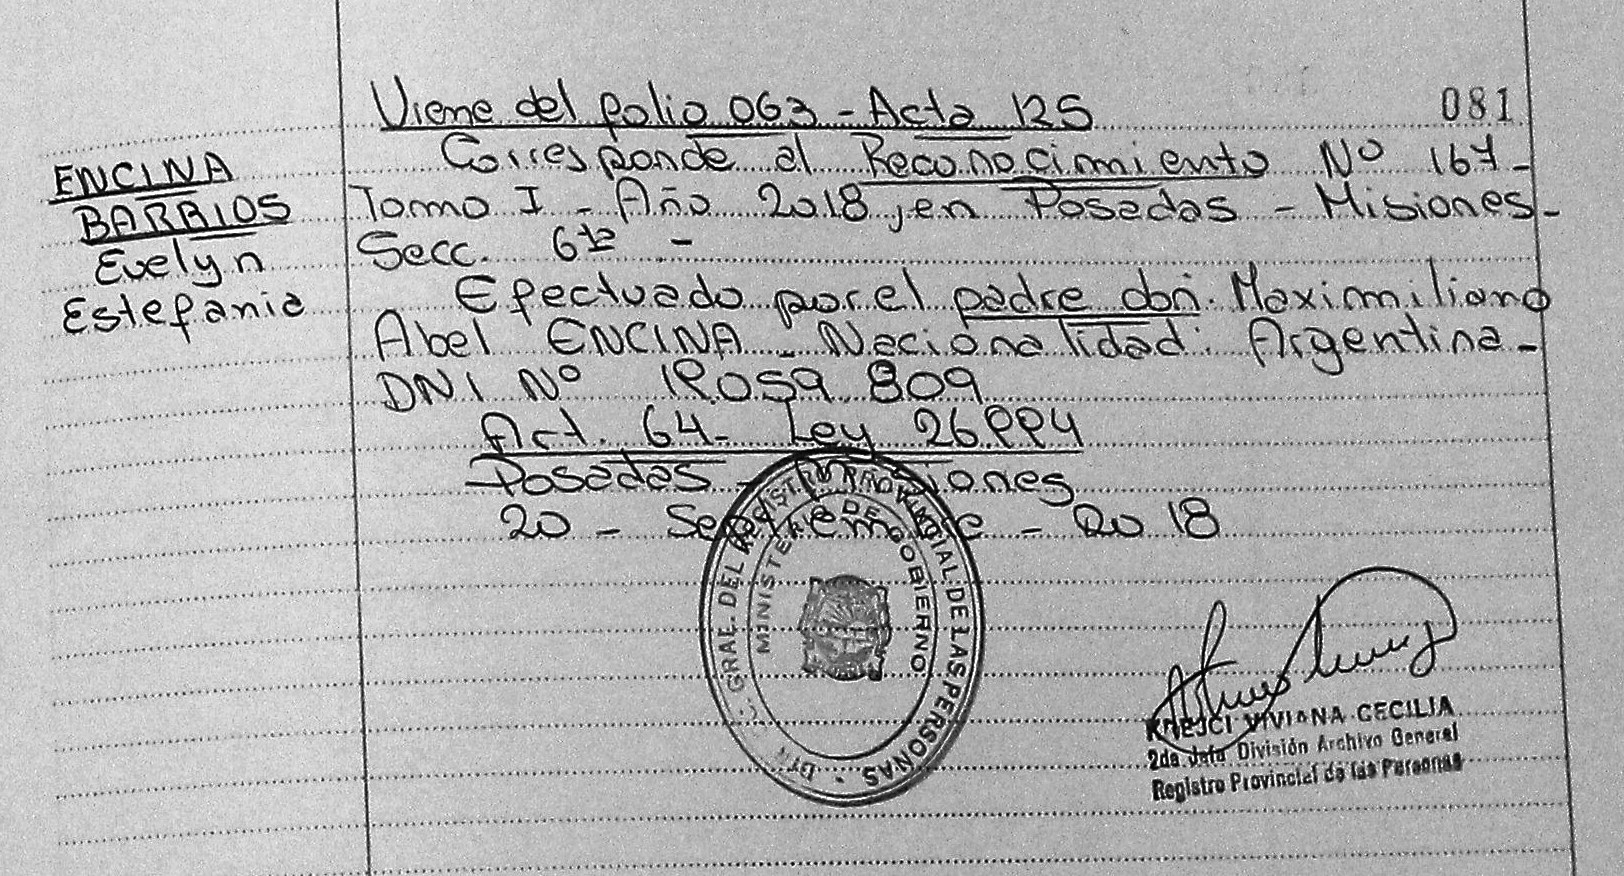 081
Viene del folio 063 - Acta 125
ENCINA
BARRIOS
Evelyn
Estefania
Corresponde al Reconocimiento Nº 167-
Tomo I - Año 2018, en Posadas - Misiones-
Secc. 6ta -
Efectuado por el padre don. Maximiliano
Abel ENCINA - Nacionalidad: Argentina-
DNI Nº
Art. 64- Ley 26.994
Posadas - Misiones
20 - Septiembre - 2018
GRAL. DEL REGISTRO PROVINCIAL DE LAS PERSONAS
MINISTERIO DE GOBIERNO
KREJCI VIVIANA CECILIA
2da Jefa División Archivo General
Registro Provincial de las Personas